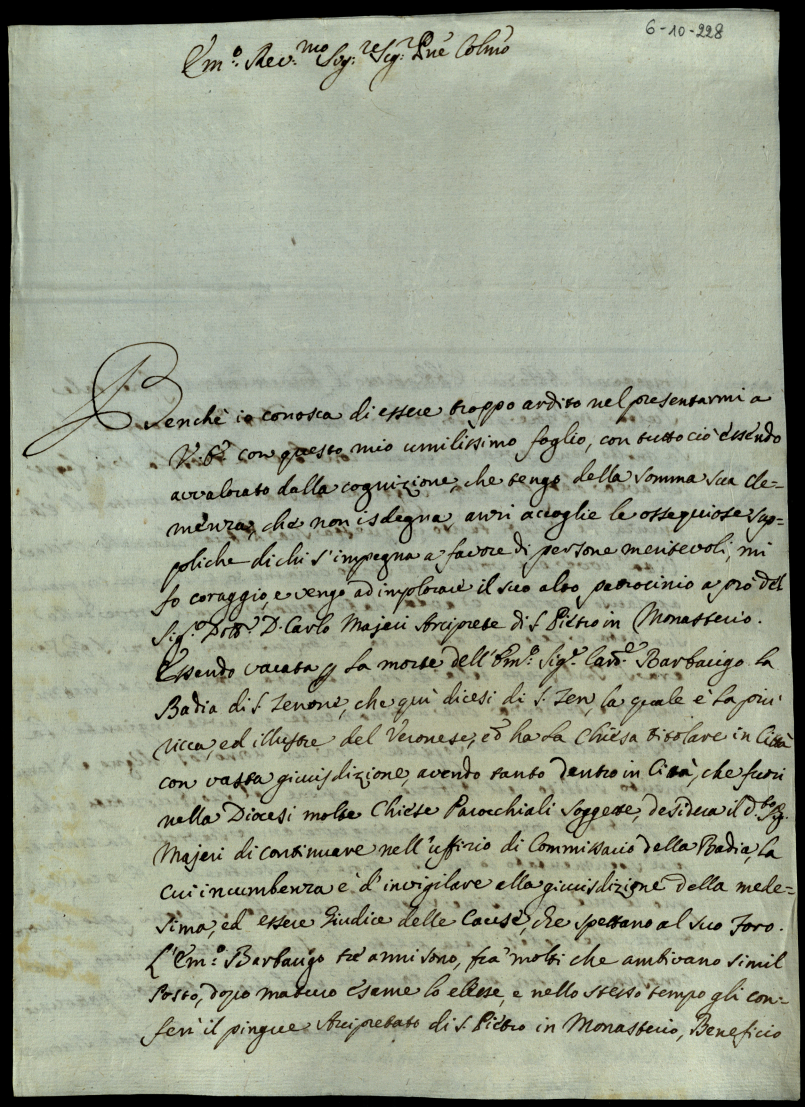 6-10-228
Em.º Rev.mo Sig.re Sig.r Pne Colmo
Benchè io conosca di essere troppo ardito nel presentarmi a
V. E. con questo mio umilissimo foglio, con tutto ciò essendo
avvalorato dalla cognizione, che tengo della somma sua cle=
menza, che non isdegna, anzi accoglie le ossequiose sup=
pliche di chi s'impegna a favore di persone meritevoli, mi
fo coraggio, e vengo ad implorare il suo alto patrocinio a prò del
Sig.r Dott.r D. Carlo Majeri Arciprete di S. Pietro in Monasterio.
Essendo vacata p la morte dell'Em.º Sig.r Card.e Barbarigo la
Badia di S. Zenone, che quì dicesi di S. Zen, la quale è la più
ricca, ed illustre del Veronese, ed ha la Chiesa titolare in Città
con vasta giurisdizione, avendo tanto dentro in Città, che fuori
nella Diocesi molte Chiese Parocchiali soggette, desidera il d.to Sig.
Majeri di continuare nell'uffizio di Commissario della Badia, la
cui incumbenza è d'invigilare alla giurisdizione della mede=
sima, ed essere Giudice delle Cause, che spettano al suo Foro.
L'Em.º Barbarigo trè anni sono, frà molti che ambivano simil
Posto, dopo maturo esame lo elesse, e nello stesso tempo gli con=
ferì il pingue Arcipretato di S. Pietro in Monasterio, Beneficio